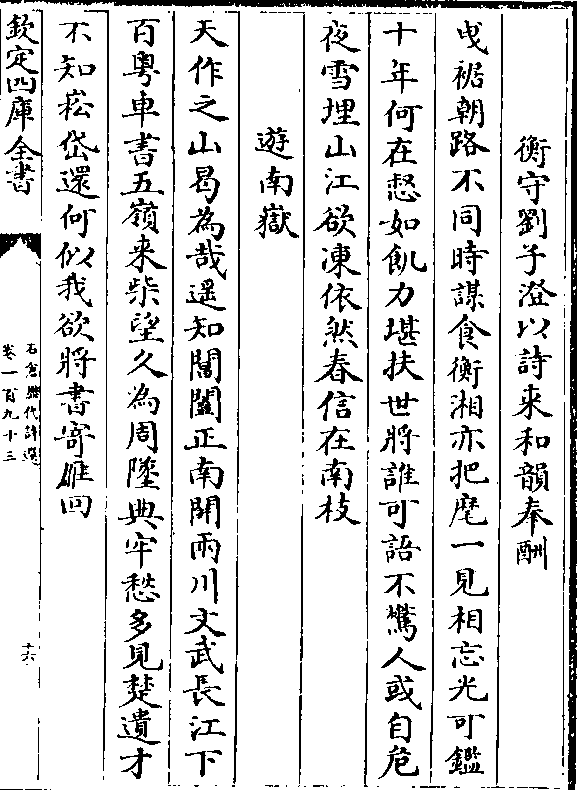 衡守劉子澄以詩来和韻奉酬
曵裾朝路不同時謀食衡湘亦把麾一見相忘光可鑑
十年何在惄如飢力堪扶世將誰可語不驚人或自危
夜雪埋山江欲凍依然春信在南枝
遊南嶽
天作之山曷為哉遥知閶闔正南開兩川文武長江下
百粤車書五嶺来柴望久為周墜典牢愁多見楚遺才
不知崧岱還何似我欲將書寄雁回
欽定四庫全書
石倉歷代詩選
卷一百九十三
十六